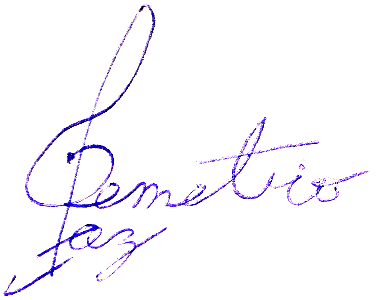 Demetrio
Paz